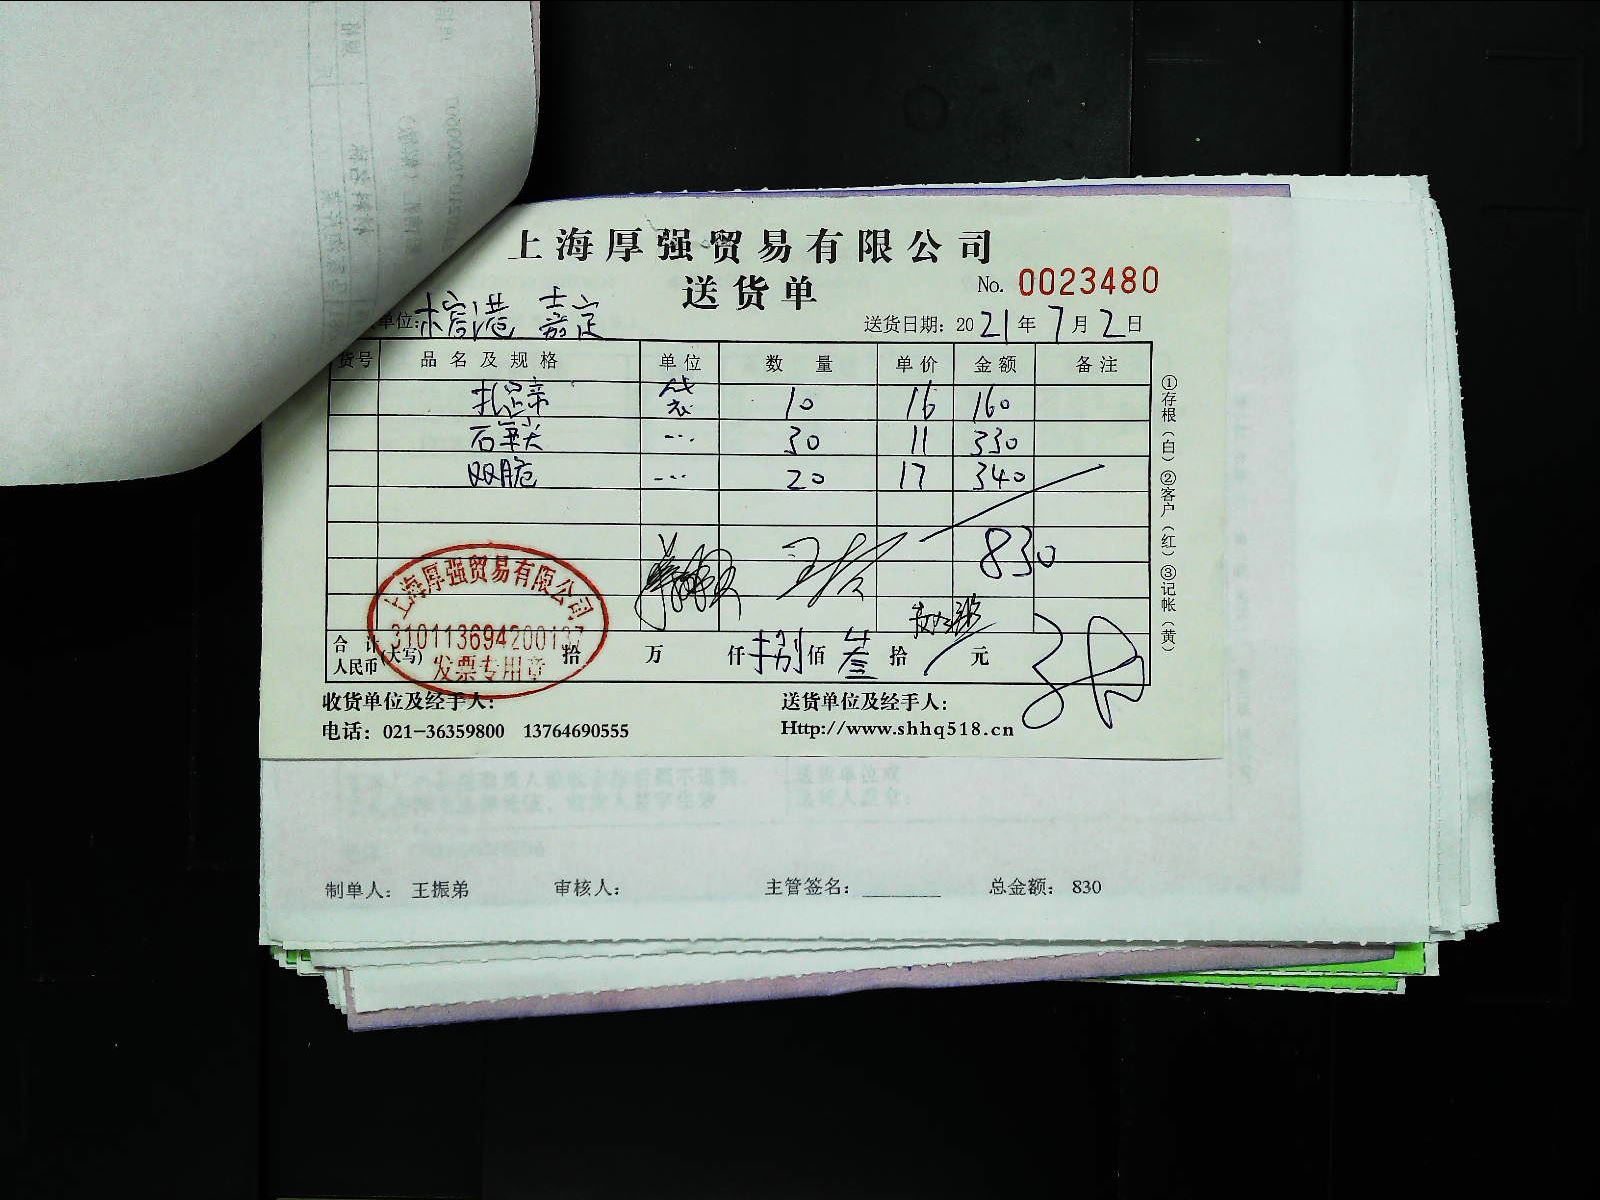 上海厚强贸易有限公司
送货单
No. 0023480
单位: 榕港 嘉定
送货日期: 2021年7月2日
货号 品名及规格 单位 数量 单价 金额 备注
扎蹄 袋 10 16 160
石 30 11 330
双脆 20 17 340
830
上海厚强贸易有限公司
310113694200137
发票专用章
合计人民币(大写) 拾 万 仟 捌佰 叁拾 元
①存根(白) ②客户(红) ③记帐(黄)
收货单位及经手人: 送货单位及经手人:
电话: 021-36359800 13764690555 Http://www.shhq518.cn
制单人: 王振弟 审核人: 主管签名: 总金额: 830